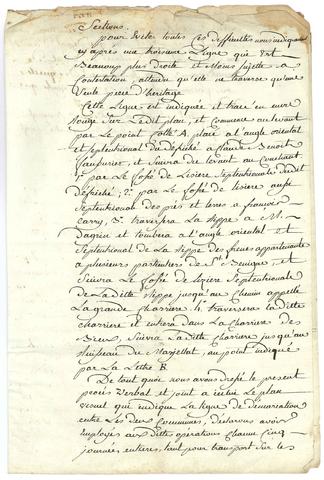 Sections.
pour Eviter toutes ces difficultés nous indiquons
cy après une troisieme Ligne qui Est
Beaucoup plus droite et Moins sujette a
Contestation attendu qu'elle ne traverse qu'une
seule piece d'heritage.
Cette Ligne est indiquée et tracé en encre
Rouge sur Ledit plan, et Commence au levant
par Le point Cotté A, placé a l'angle oriental
et septentrional du defriché a Claude Benoit
et suivra du levant au Couchant
1° par Le fossé de Lisiere septentrionale dudit
defriché; 2° par Le fossé de lisiere aussi
septentrional des prés et terres a francois
Carry, 3° traversera La teppe a M.
Dagrin et tombera a l'angle oriental et
septentrional de La teppe des appartenante
a plusieurs particuliers de St. Benigne, et
suivra Le fossé de lisiere septentrionale
de Laditte teppe jusqu'au Chemin appellé
La grande Charriere 4° traversera La ditte
Charriere et entrera dans La Charriere des
suivra Laditte Charriere jusqu'au
Ruisseau du Marjollat, au point indiqué
par La Lettre B.
De tout quoi nous avons dressé Le present
procès Verbal et joint a icelui Le plan
visuel qui indique La ligne de démarcation
entre Les deux Communes, declarons avoir
Employés aux dittes opérations Chacun Cinq
journées entieres, tant pour transport sur les